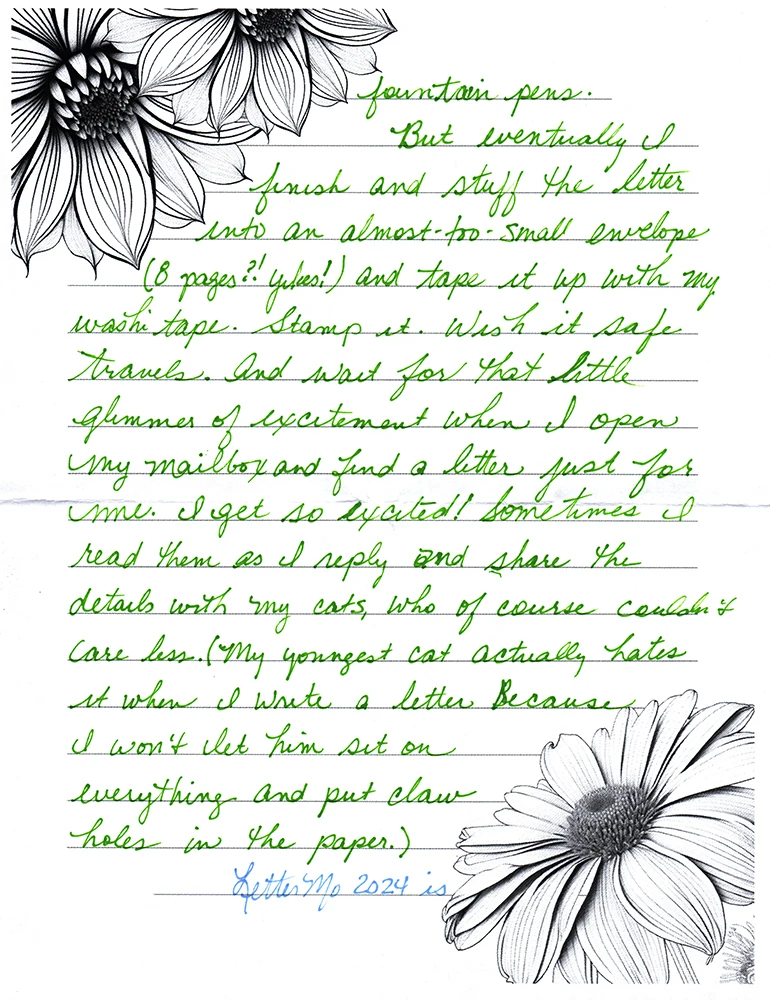 fountain pens.
But eventually I
finish and stuff the letter
into an almost-too-small envelope
(8 pages?! yikes!) and tape it up with my
washi tape. Stamp it. Wish it safe
travels. And wait for that little
glimmer of excitement when I open
my mailbox and find a letter just for
me. I get so excited! Sometimes I
read them as I reply and share the
details with my cats, who of course couldn't
care less. (My youngest cat actually hates
it when I write a letter Because
I won't let him sit on
everything and put claw
holes in the paper.)
LetterMo 2024 is